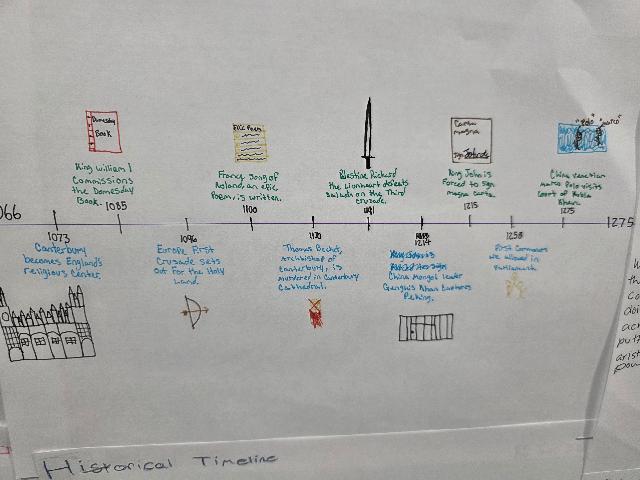 Domesday
Book
King William I
Commissions
the Domesday
Book.
1085
EPIC Poem
France Song of
Roland, an epic
Poem, is written.
1100
Palestine Richard
the Lionheart defeats
Saladin on the Third
Crusade.
1191
magna
King John is
Forced to sign
magna carta.
1215
China Venetian
Marco Polo visits
Court of Kubla
Khan.
1275
066
1275
1073
Canterbury
becomes England's
religious Center.
1096
Europe First
Crusade sets
out for the Holy
Land.
1170
Thomas Becket,
Archbishop of
Canterbury, is
murdered in Canterbury
Cathedral.
1214
China Mongol leader
Genghis Khan Captures
Peking.
1258
First Commoners
allowed in
Parliament.
Historical Timeline